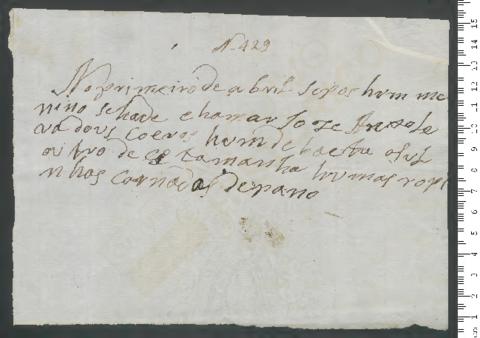 N. 429
No primeiro de abril se pos hum me
nino se hade chamar Joze
va dous coeros hum de baeta
outro de estamanha humas roupi
nhas de pano